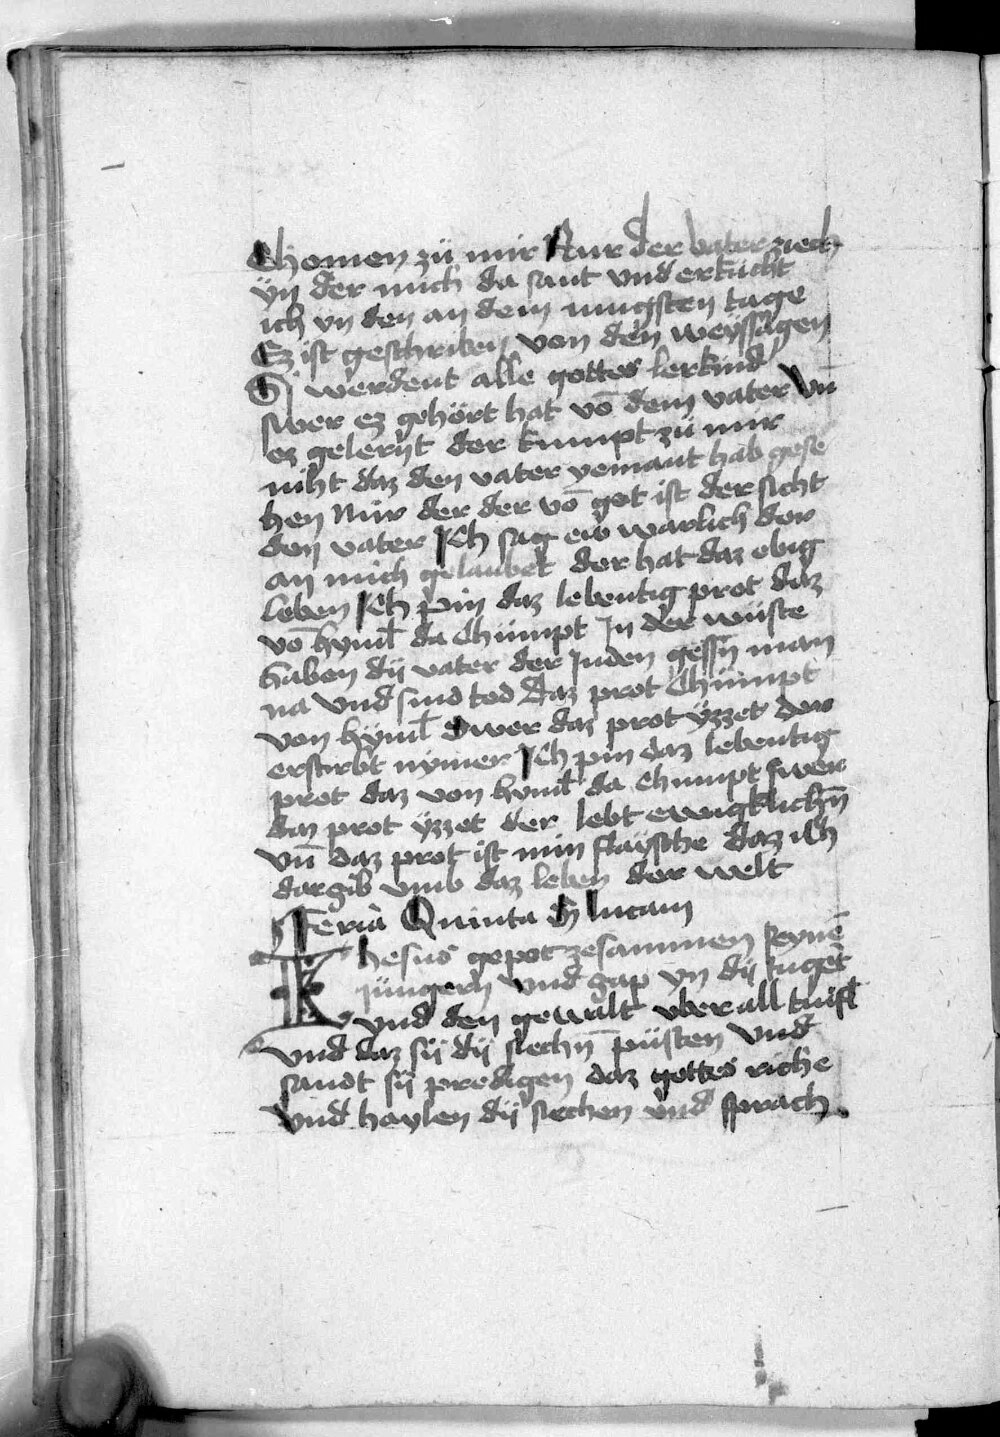 Chomen zü mir Nur der vater ziech
yn der mich da sant vnd erkücht
ich yn den an dem iungsten tage
Ez ist geschriben von den weyssagen
Si werdent alle gottes lerkind
swer ez gehört hat vō dem vater vn̄
ez gelernt der kumpt zü mir
niht daz den vater yemant hab gese
hen Nür der der vō got ist der sicht
den vater Ich sag ew warlich der
an mich gelaubet der hat daz ebig
leben Ich pin daz lebentig prot daz
vō hyml da chümpt In der wüste
haben dij vater der Juden gessn̄ man
na vnd sind tod Daz prot chümpt
von hyml Swer daz prot yzzet der
erstirbt nymer Ich pin daz lebentig
prot daz von hyml da chumpt swer
daz prot yzzet der lebt ewigklichn̄
vn̄ daz prot ist min flaysche daz ich
dar gib vmb daz leben der welt
Feria Quinta S lucam
Ihesus gepot zesammen seynē
jüngern vnd gap yn dij tugēt
vnd den gewalt vber all tuifl
vnd daz sij dij siechn̄ püsten vnd
sandt sij predigen daz gottes riche
vnd haylen dij siechen vnd sprach